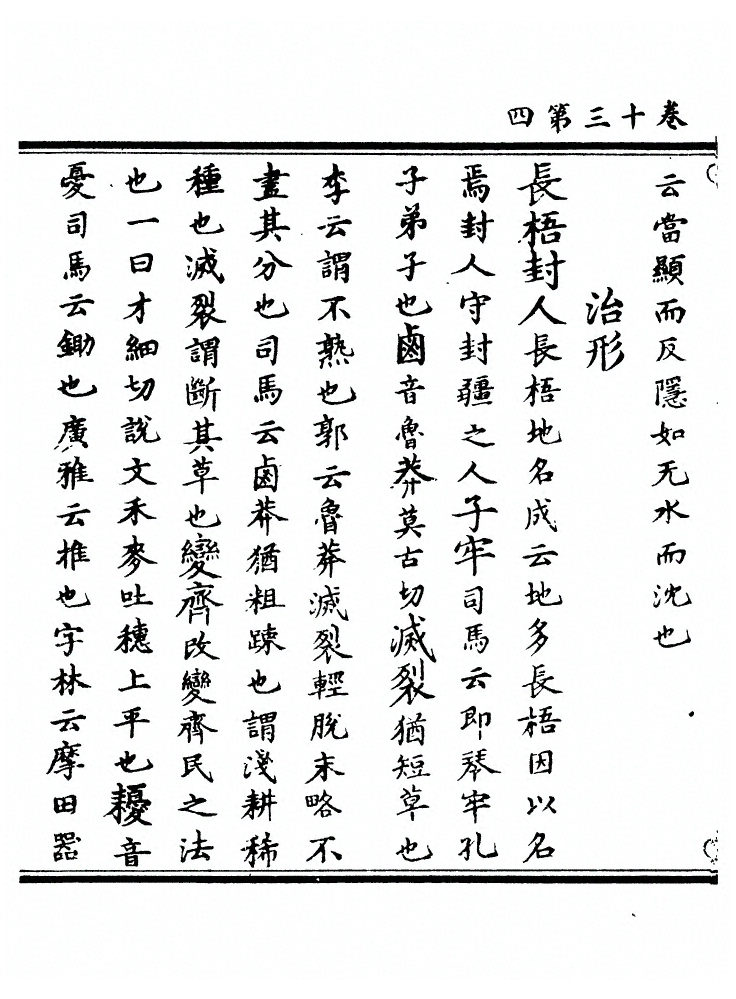 卷十三第四
云當顯而反隱如无水而沈也
治形
長梧封人長梧地名成云地多長梧因以名
焉封人守封疆之人子牢司馬云即琴牢孔
子弟子也鹵音魯莽莫古切滅裂猶短草也
李云謂不熟也郭云魯莽滅裂輕脫末略不
盡其分也司馬云鹵莽猶粗踈也謂淺耕稀
種也滅裂謂斷其草也變齊改變齊民之法
也一曰才細切說文禾麥吐穗上平也耰音
憂司馬云鋤也廣雅云推也字林云摩田器